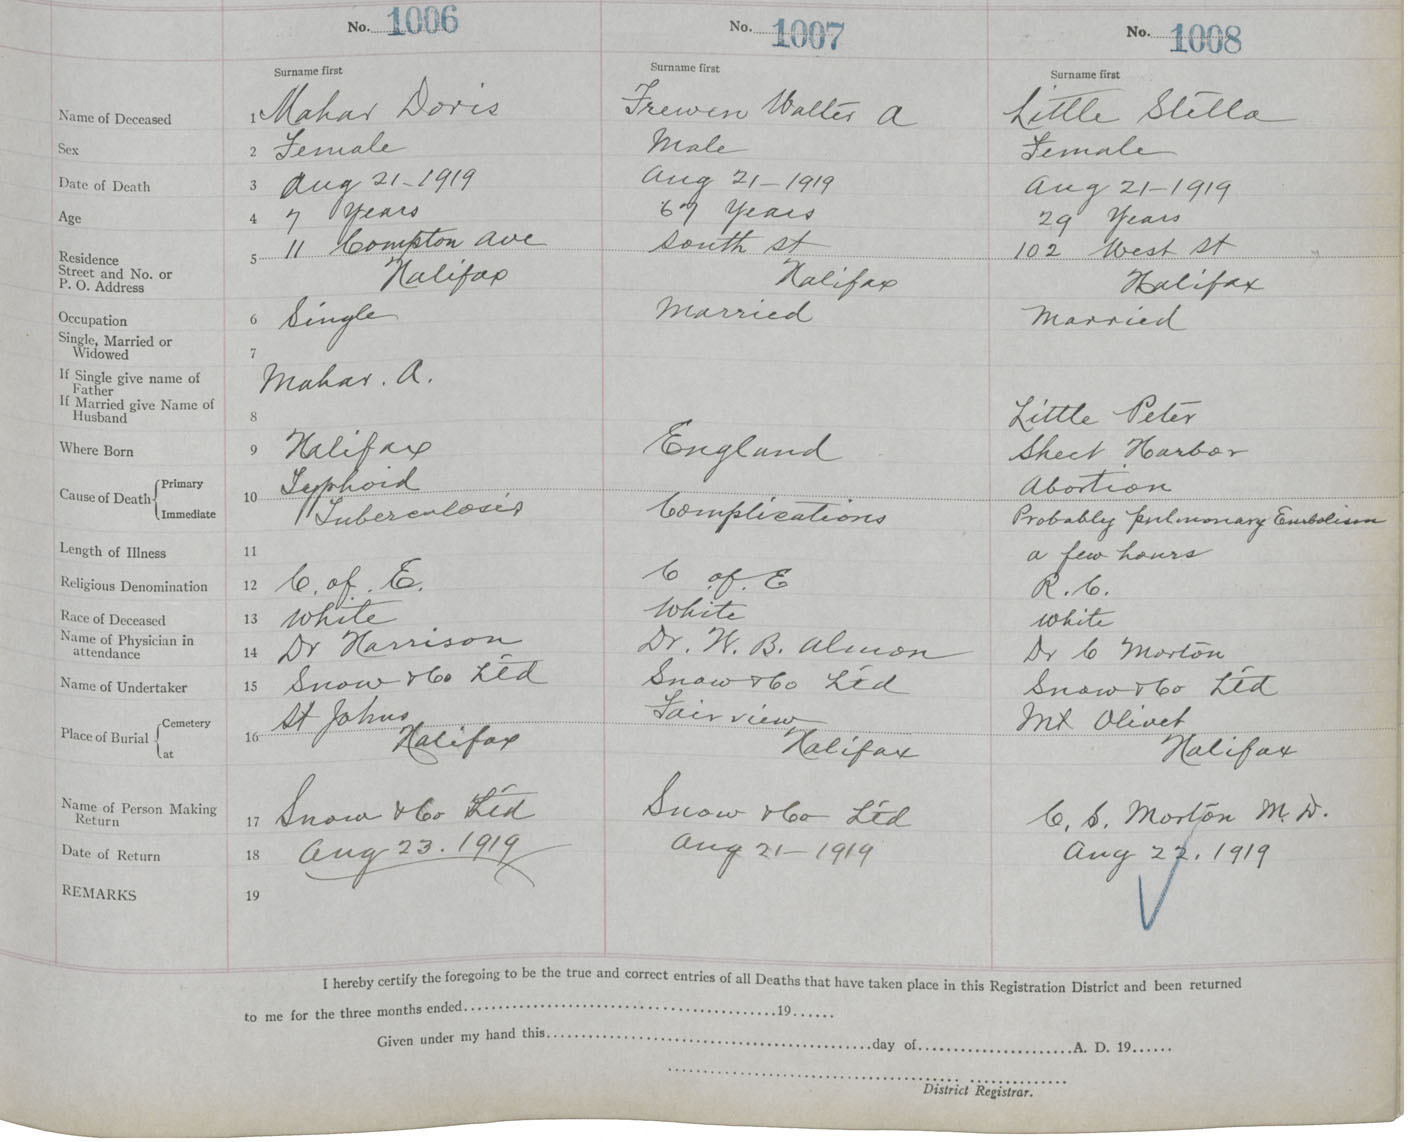 No. 1006 No. 1007 No. 1008
Surname first Surname first Surname first
Name of Deceased 1 Mahar Doris Frewen Walter A Little Stella
Sex 2 Female Male Female
Date of Death 3 Aug 21-1919 Aug 21-1919 Aug 21-1919
Age 4 7 Years 67 Years 29 Years
Residence 5 11 Compton Ave South St 102 West St
Street and No. or
P. O. Address Halifax Halifax Halifax
Occupation 6 Single Married Married
Single, Married or
Widowed 7
If Single give name of Mahar. A.
Father
If Married give Name of
Husband 8 Little Peter
Where Born 9 Halifax England Sheet Harbor
Cause of Death Primary 10 Typhoid Abortion
Immediate Tuberculosis Complications Probably pulmonary Embolism
Length of Illness 11 a few hours
Religious Denomination 12 C. of. E. C of E R. C.
Race of Deceased 13 White White White
Name of Physician in
attendance 14 Dr Harrison Dr. W. B. Almon Dr C Morton
Name of Undertaker 15 Snow & Co Ltd Snow & Co Ltd Snow & Co Ltd
Place of Burial Cemetery 16 St Johns Fairview Mt Olivet
at Halifax Halifax Halifax
Name of Person Making
Return 17 Snow & Co Ltd Snow & Co Ltd C. S. Morton M. D.
Date of Return 18 Aug 23. 1919 Aug 21-1919 Aug 22. 1919
REMARKS 19
I hereby certify the foregoing to be the true and correct entries of all Deaths that have taken place in this Registration District and been returned
to me for the three months ended..........19......
Given under my hand this..........day of..........A. D. 19......
District Registrar.